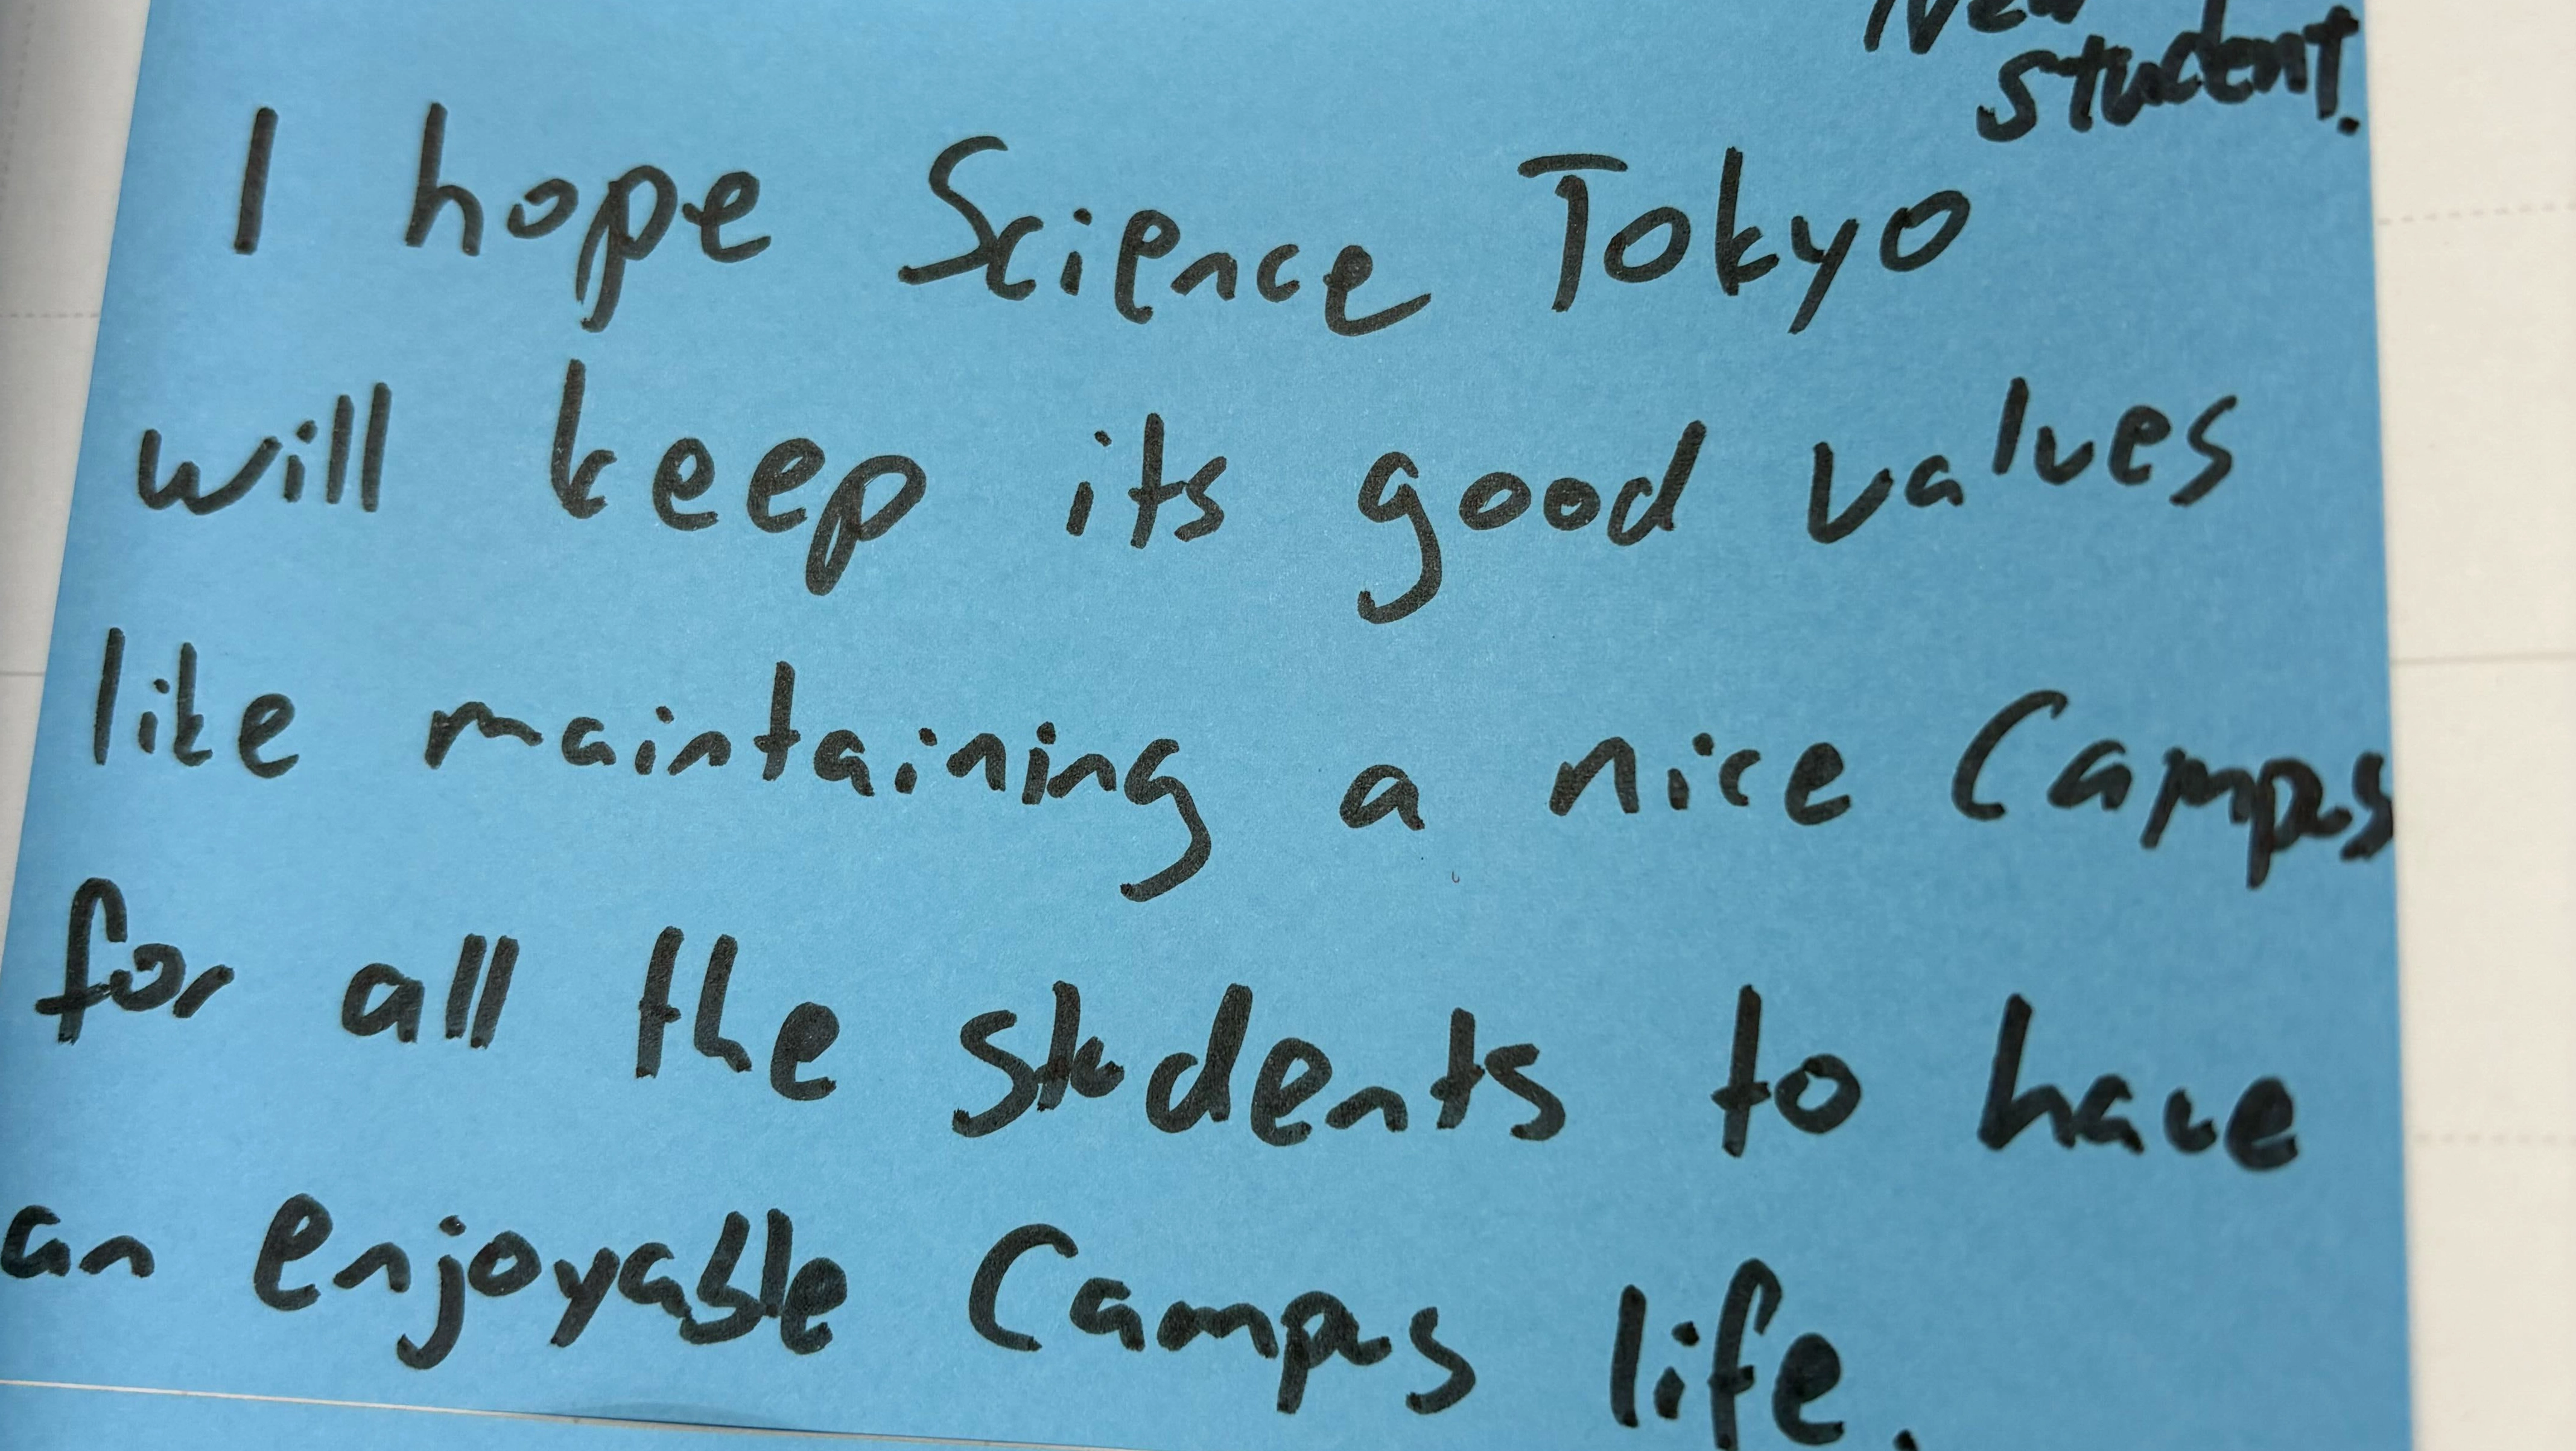 New
student.
I hope Science Tokyo
will keep its good values
like maintaining a nice Campus
for all the students to have
an enjoyable Campus life.